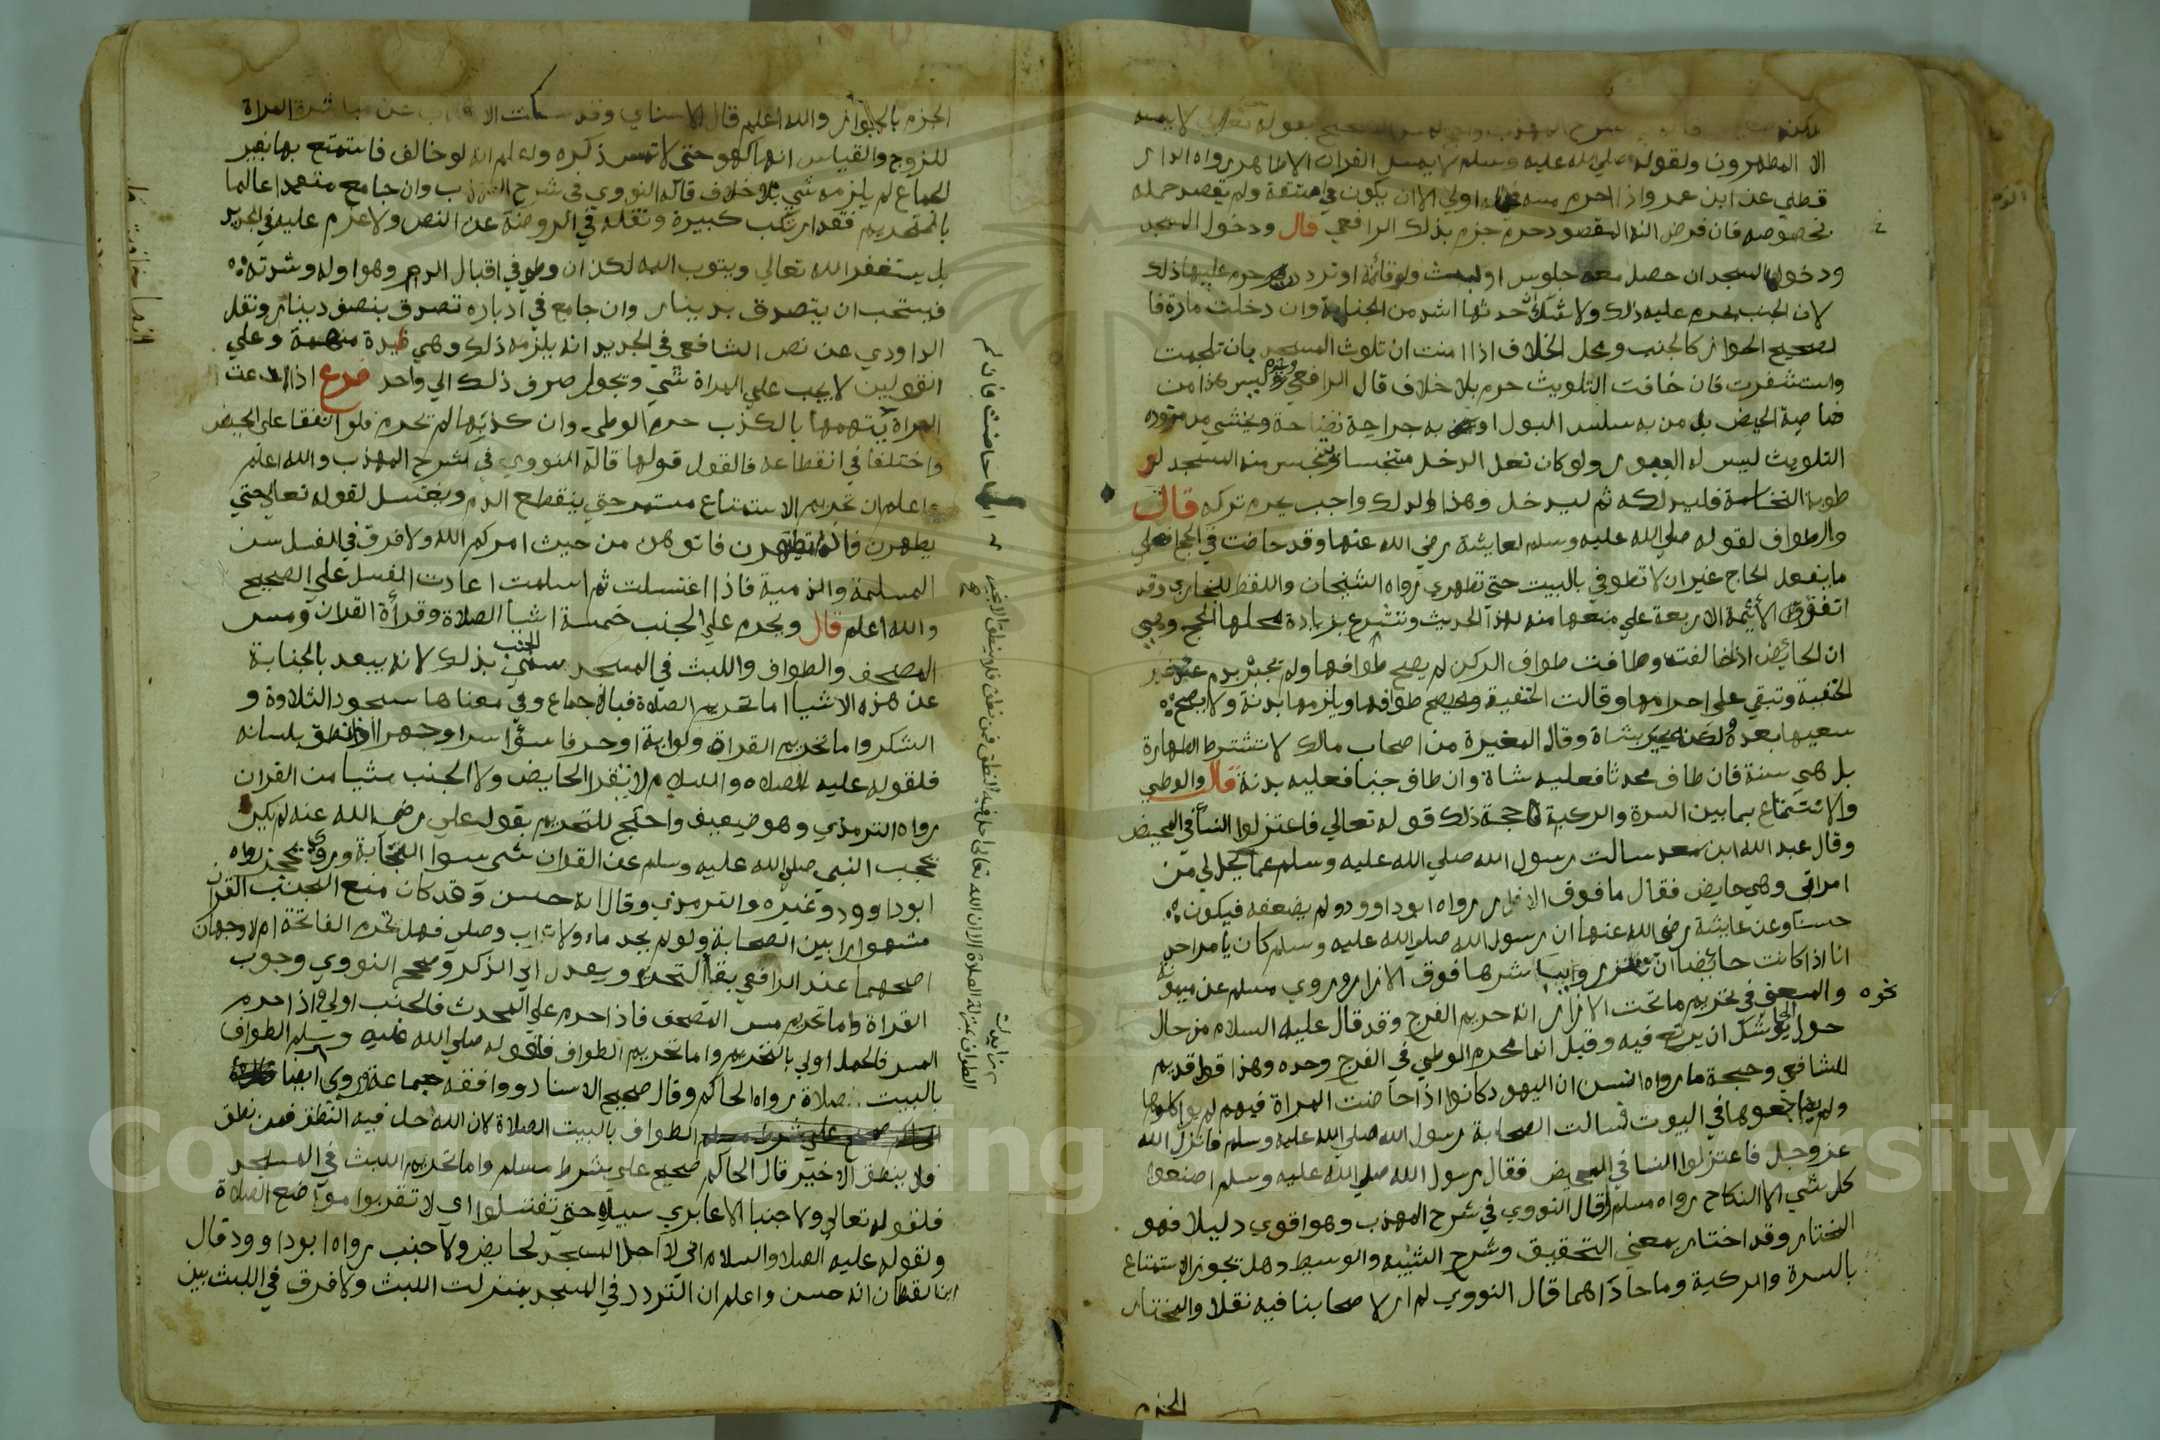 الا المطهرون ولقوله صلي الله عليه وسلم لا يمس القران الا طاهر رواه الدار
قطني عن ابن عمر واذا حرم مسه فحمله اولي الا ان يكون في امتعة ولم يقصد حمله
بخصوصه فان فرض انه المقصود حرم جزم بذلك الرافعي قال ودخول المسجد
ودخولها المسجد ان حصل معه جلوس او لبث ولو قائمة او تردد حرم عليها ذلك
لان الجنب يحرم عليه ذلك ولا شك ان حدثها اشد من الجنابة وان دخلت مارة فا
لصحيح الجواز كالجنب ومحل الخلاف اذا امنت ان تلوث المسجد بان تلجمت
واستثفرت فان خافت التلويث حرم بلا خلاف قال الرافعي وغيره ليس هذا من
خاصية الحيض بل من به سلس البول او به جراحة نضاحة ويخشي من مروره
التلويث ليس له العبور ولو كان نعل الداخل متنجسا وتنجس منه المسجد لو
طوبة النجاسة فليدلكه ثم ليدخل وهذا الدلك واجب يحرم تركه قال
والطواف لقوله صلي الله عليه وسلم لعايشة رضي الله عنها وقد حاضت في الحج افعلي
ما يفعل الحاج غير ان لا تطوفي بالبيت حتى تطهري رواه الشيخان واللفظ للبخاري وقد
اتفق الأئمة الاربعة علي منعها منه لهذا الحديث وتشرع بزيادة محلها الحج وهي
ان الحائض اذا خالفت وطافت طواف الركن لم يصح طوافها ولم يجبر بدم عند غير
الحنفية وتبقي علي احرامها وقالت الحنفية يصح طوافها ويلزمها بدنة ولا يصح
سعيها بعده لكنه يجبر بشاة وقال المغيرة من اصحاب مالك لا تشترط الطهارة
بل هي سنة فان طاف محدثا فعليه شاة وان طاف جنبا فعليه بدنة قال والوطي
والاستمتاع بما بين السرة والركبة حجة ذلك قوله تعالي فاعتزلوا النسأ في المحيض
وقال عبد الله ابن سعد سالت رسول الله صلي الله عليه وسلم عما يحل لي من
امراتي وهي حايض فقال ما فوق الازار رواه ابو داوود ولم يضعفه فيكون
حسنا وعن عايشة رضي الله عنها ان رسول الله صلي الله عليه وسلم كان يأمر احد
انا اذا كانت حائضا ان تتزر ويباشرها فوق الازار وروي مسلم عن ميمونة
نحوه والمعنى في تحريم ما تحت الازار انه حريم الفرج وقد قال عليه السلام من حال
حول الحما يوشك ان يرتع فيه وقيل انما محرم الوطي في الفرج وحده وهذا قول قديم
للشافعي وحجة ما رواه انس ان اليهود كانوا اذا حاضت المراة فيهم لم يواكلوها
ولم يجامعوها في البيوت فسالت الصحابة رسول الله صلي الله عليه وسلم فانزل الله
عز وجل فاعتزلوا النسا في المحيض فقال رسول الله صلي الله عليه وسلم اصنعوا
كل شي الا النكاح رواه مسلم وقال النووي في شرح المهذب وهو اقوي دليلا فهو
المختار وقد اختاره بمعني التحقيق وشرح التنبيه والوسيط وهل يجوز الاستمتاع
بالسرة والركبة وما حاذاهما قال النووي لم ار لاصحابنا فيه نقلا والمختار
الجزم
الجزم بالجواز والله اعلم قال الاسناي وقد سكت الاصحاب عن مباشرة المراة
للزوج والقياس انها كهو حتي لا تمس ذكره واعلم انه لو خالف فاستمتع بها بغير
الجماع لم يلزمه شي بلا خلاف قاله النووي في شرح المهذب وان جامع متعمدا عالما
بالتحريم فقد ارتكب كبيرة ونقله في الروضة عن النص ولا غرم عليه في الجديد
بل يستغفر الله تعالي ويتوب اليه لكن ان وطي في اقبال الدم وهو اوله وشدته
فيستحب ان يتصدق بدينار وان جامع في ادباره تصدق بنصف دينار ونقل
الداودي عن نص الشافعي في الجديد انه يلزمه ذلك وهي وعلي
القولين لا يجب علي المراة شي ويجوز صرف ذلك الي واحد فرع اذا ادعت
المراة يتهمها بالكذب حرم الوطي وان كذبها لم تحرم فلو اتفقا على الحيض
واختلفا في انقطاعه فالقول قولها قاله النووي في شرح المهذب والله اعلم
واعلم ان تحريم الاستمتاع مستمر حتى ينقطع الدم ويغتسل لقوله تعالي حتي
يطهرن فاذا تطهرن فاتوهن من حيث امركم الله ولا فرق في الغسل بين
المسلمة والذمية فاذا اغتسلت ثم اسلمت اعادت الغسل علي الصحيح
والله اعلم قال ويحرم علي الجنب خمسة اشيأ الصلاة وقرأة القران ومس
المصحف والطواف واللبث في المسجد سمي الجنب بذلك لانه يبعد بالجنابة
عن هذه الاشيا اما تحريم الصلاة فبالاجماع وفي معناها سجود التلاوة و
الشكر واما تحريم القراة ولو اية او حرفا سوأ اسرا وجهرا اذا نطق بلسانه
فلقوله عليه الصلاه والسلام لا يقرا الحايض ولا الجنب شيأ من القران
رواه الترمذي وهو ضعيف واحتج للتحريم بقول علي رضي الله عنه لم يكن
يحجب النبي صلي الله عليه وسلم عن القران شي سوا الجنابة وروي يحجز رواه
ابو داوود وغيره والترمذي وقال انه حسن وقد كان منع الجنب القران
مشهورا بين الصحابة ولو لم يجد ماء ولا تراب وصلي فهل تحرم الفاتحة ام لا وجهان
اصحهما عند الرافعي بقأ التحريم ويعدل الي الذكر وصحح النووي وجوب
القراة واما تحريم مس المصحف فاذا حرم علي المحدث فالجنب اولي واذا حرم
المس فالحمل اولي بالتحريم واما تحريم الطواف فلقوله صلي الله عليه وسلم الطواف
بالبيت صلاة رواه الحاكم وقال صحيح الاسناد ووافقه جماعة وروي ايضا
الطواف بالبيت الصلاة لان الله حل فيه النطق فمن نطق
فلا ينطق الا بخير قال الحاكم صحيح علي شرط مسلم واما تحريم اللبث في المسجد
فلقوله تعالي ولا جنبا الا عابري سبيل حتي تغتسلوا اي لا تقربوا مواضع الصلاة
ولقوله عليه الصلاه والسلام اني لا احل المسجد لحايض ولا جنب رواه ابو داوود قال
ابن القطان انه حسن واعلم ان التردد في المسجد بمنزلت اللبث ولا فرق في اللبث بين
Copyright © King Saud University